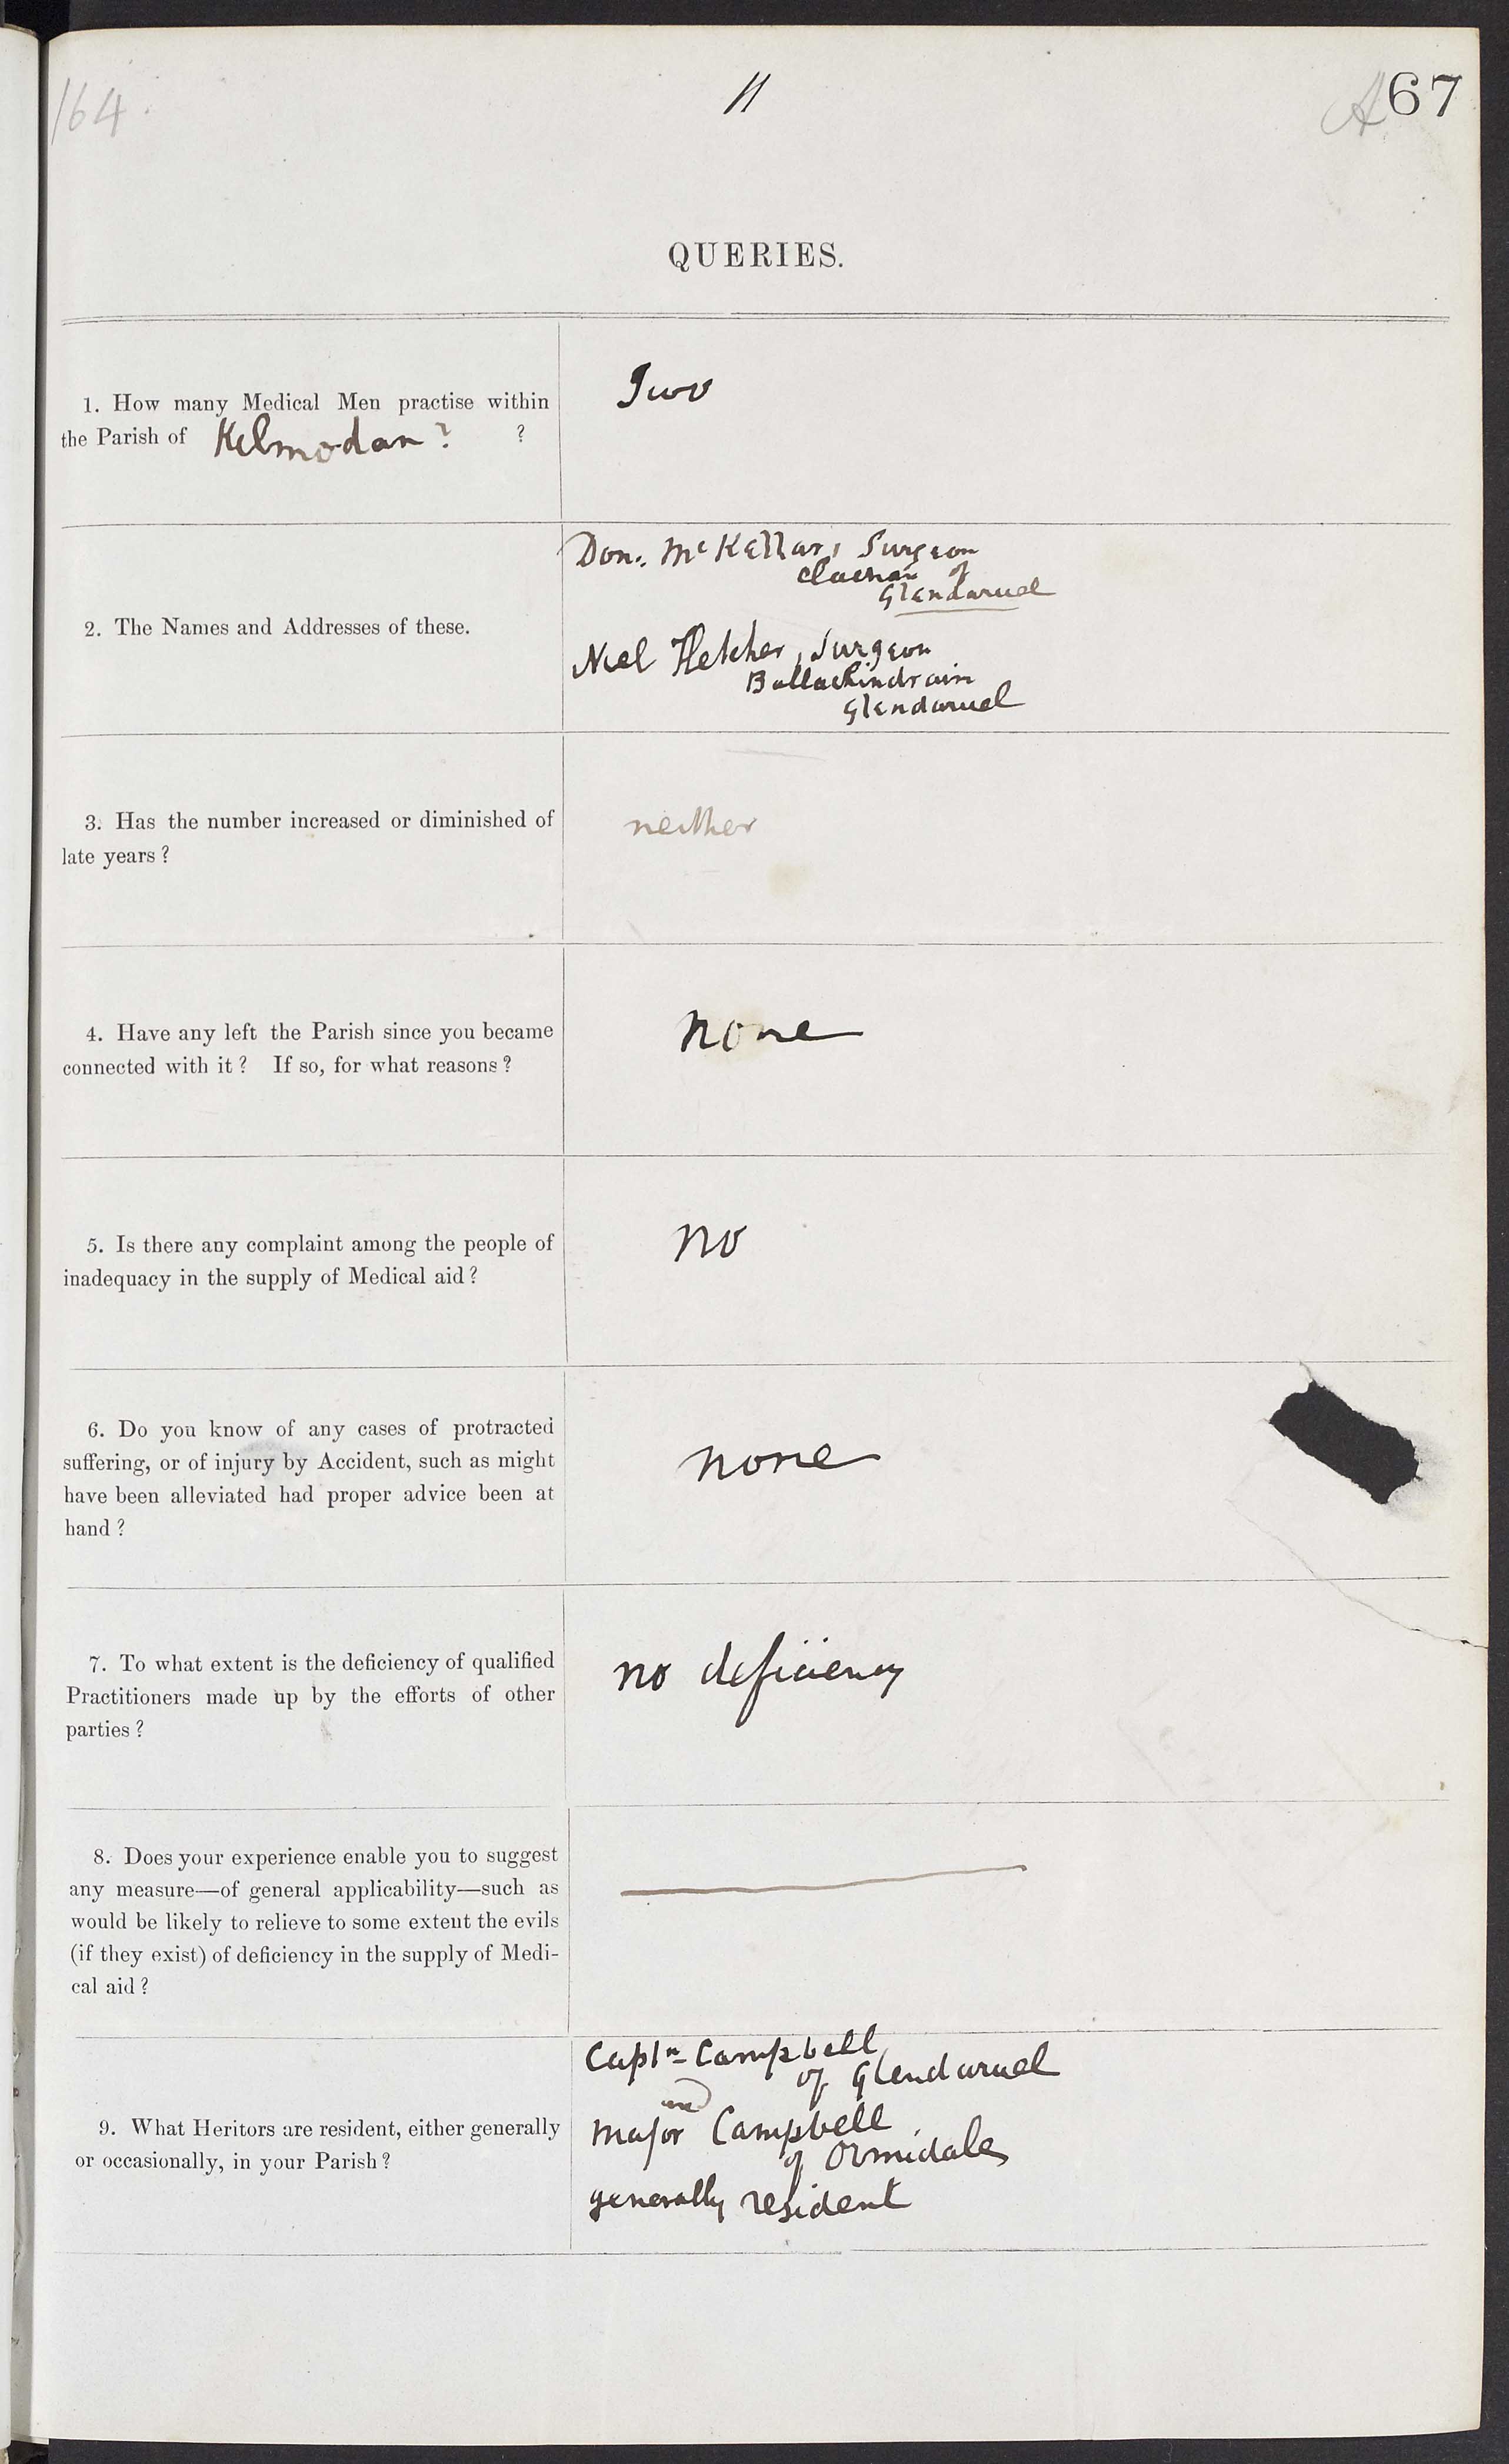 164.
11
A 67
QUERIES.
1. How many Medical Men practise within
the Parish of Kilmodan? ?
Two
2. The Names and Addresses of these.
Don. McKellar, Surgeon
Clachan of
Glendaruel
Niel Fletcher, Surgeon
Ballachindrain
Glendaruel
3. Has the number increased or diminished of
late years?
neither
4. Have any left the Parish since you became
connected with it? If so, for what reasons?
None
5. Is there any complaint among the people of
inadequacy in the supply of Medical aid?
No
6. Do you know of any cases of protracted
suffering, or of injury by Accident, such as might
have been alleviated had proper advice been at
hand?
None
7. To what extent is the deficiency of qualified
Practitioners made up by the efforts of other
parties?
no deficiency
8. Does your experience enable you to suggest
any measure—of general applicability—such as
would be likely to relieve to some extent the evils
(if they exist) of deficiency in the supply of Medi-
cal aid?
9. What Heritors are resident, either generally
or occasionally, in your Parish?
Captn Campbell
of Glendaruel
and
Major Campbell
of Ormidale
generally resident